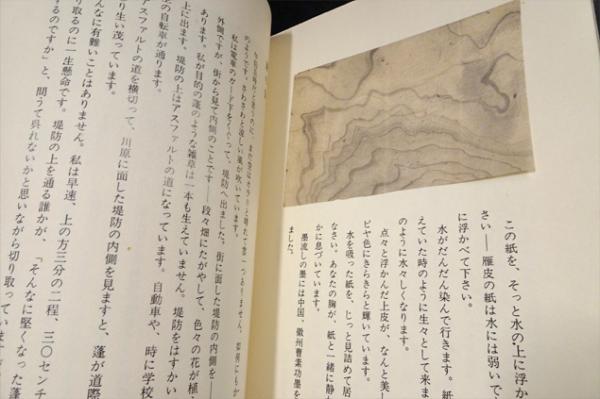 この紙を、そっと水の上に浮か
さい――雁皮の紙は水には弱いで
に浮かべて下さい。
水がだんだん染んで行きます。紙
えていた時のように生々として来ま
のように水々しくなります。
点々と浮かんだ上皮が、なんと美し
ビヤ色にきらきらと輝いています。
水を吸った紙を、じっと見詰めて居
なさい、あなたの胸が、紙と一緒に静
かに息づいています。
墨流しの墨には中国、徽州曹素功墨を
ました。
のようです。さわさわと涼しい風が吹いています。
私は電車のガードをくぐって、堤防へ出ました。街に面した堤防の内側を――
外側ですが、街から見て内側のことです――段々畑にたがやして、色々の花が植
あります。私が目的の蓬のような雑草は一本も生えていません。堤防をはすかい
上に出ます。堤防の上はアスファルトの道になっています。自動車や、時に学校
の自転車が通ります。
アスファルトの道を横切って、川原に面した堤防の内側を見ますと、蓬が道際
り生い茂っています。
んなに有難いことはありません。私は早速、上の方三分の二程、三〇センチ
り取るのに一生懸命です。堤防の上を通る誰かが、「そんなに堅くなった蓬
するのですか」と、問うて呉れないかと思いながら切り取っています